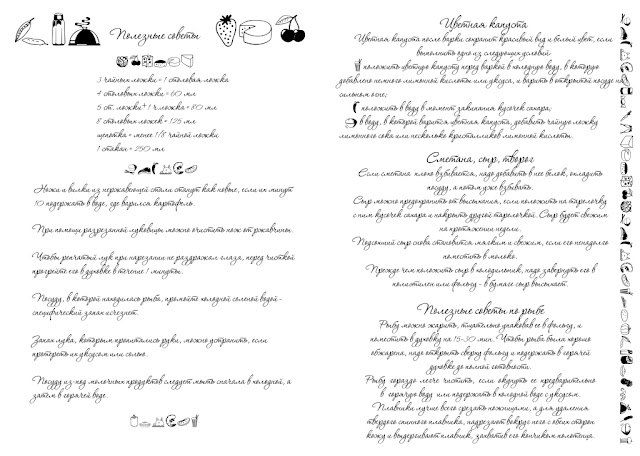 Полезные советы
3 чайных ложки = 1 столовая ложка
4 столовых ложки = 60 мл
5 ст. ложки + 1 ч.ложка = 80 мл
8 столовых ложек = 125 мл
щепотка = менее 1/8 чайной ложки
1 стакан = 250 мл
Ножи и вилки из нержавеющей стали станут как новые, если их минут
10 подержать в воде, где варился картофель.
При помощи разрезанной луковицы можно очистить нож от ржавчины.
Чтобы репчатый лук при нарезании не раздражал глаза, перед чисткой
прогрейте его в духовке в течение 1 минуты.
Посуду, в которой находилась рыба, промойте холодной соленой водой -
специфический запах исчезнет.
Запах лука, которым пропитались руки, можно устранить, если
протереть их уксусом или солью.
Посуду из-под молочных продуктов следует мыть сначала в холодной, а
затем в горячей воде.
Цветная капуста
Цветная капуста после варки сохранит красивый вид и белый цвет, если
выполнить одно из следующих условий:
положить цветную капусту перед варкой в холодную воду, в которую
добавлено немного лимонной кислоты или уксуса, и варить в открытой посуде на
сильном огне;
положить в воду в момент закипания кусочек сахара;
в воду, в которой варится цветная капуста, добавить чайную ложку
лимонного сока или несколько кристалликов лимонной кислоты.
Сметана, сыр, творог
Если сметана плохо взбивается, надо добавить в нее белок, охладить
посуду, а потом уже взбивать.
Сыр можно предохранить от высыхания, если положить на тарелочку
с ним кусочек сахара и накрыть другой тарелочкой. Сыр будет свежим
на протяжении недели.
Подсохший сыр снова становится мягким и свежим, если его ненадолго
поместить в молоко.
Прежде чем положить сыр в холодильник, надо завернуть его в
полиэтилен или фольгу - в бумаге сыр высыхает.
Полезные советы по рыбе
Рыбу можно жарить, тщательно упаковав ее в фольгу, и
поместить в духовку на 15-30 мин. Чтобы рыба была хорошо
обжарена, надо открыть сверху фольгу и подержать в горячей
духовке до полной готовности.
Рыбу гораздо легче чистить, если окунуть ее предварительно
в горячую воду или подержать в холодной воде с уксусом.
Плавники лучше всего срезать ножницами, а для удаления
твердого спинного плавника, надрезают вокруг него с обеих сторон
кожу и выдергивают плавник, захватив его кончиком полотенца.